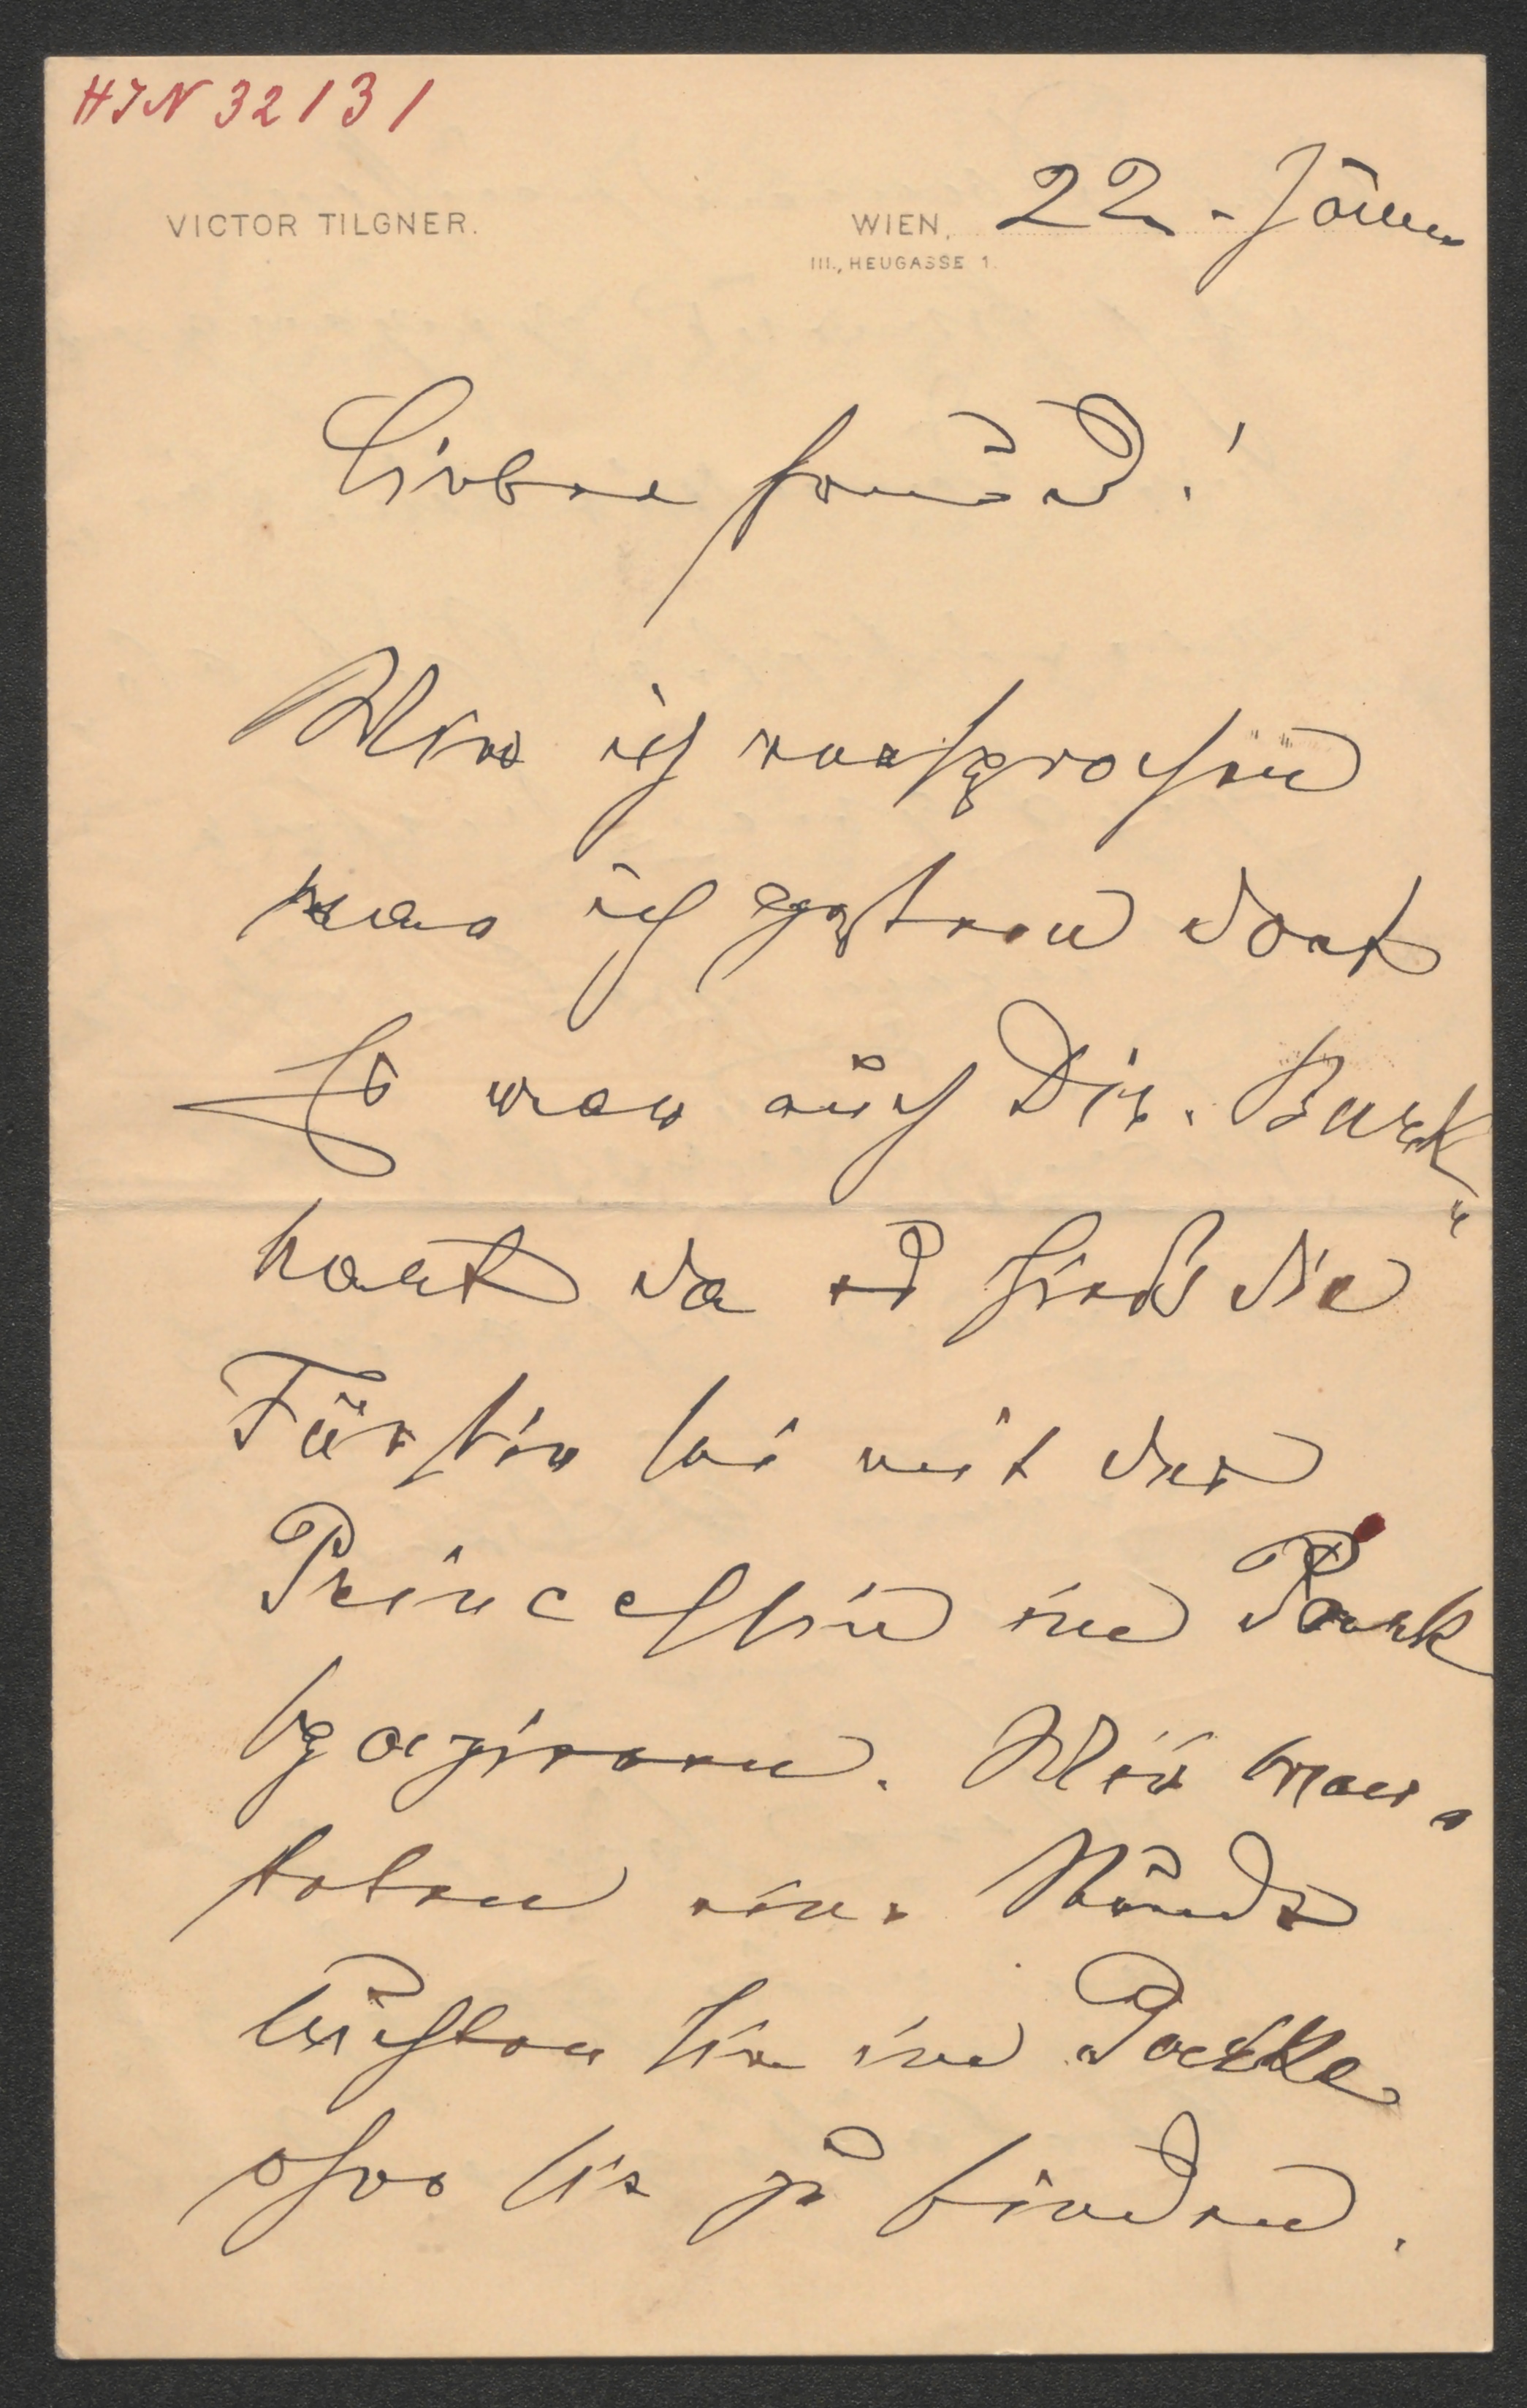 HIN 32131
VICTOR TILGNER.
WIEN, 22. Jänner
III., HEUGASSE 1.
Lieber Freund!
Wie ich versprochen
war ich gestern dort
Es war auch Dir. Burk„
hart da es hieß die
Fürstin sei mit der
Princessin im Park
spazieren. Wir war„
teten eine Stunde
suchten sie im Parke
ohne sie zu finden.